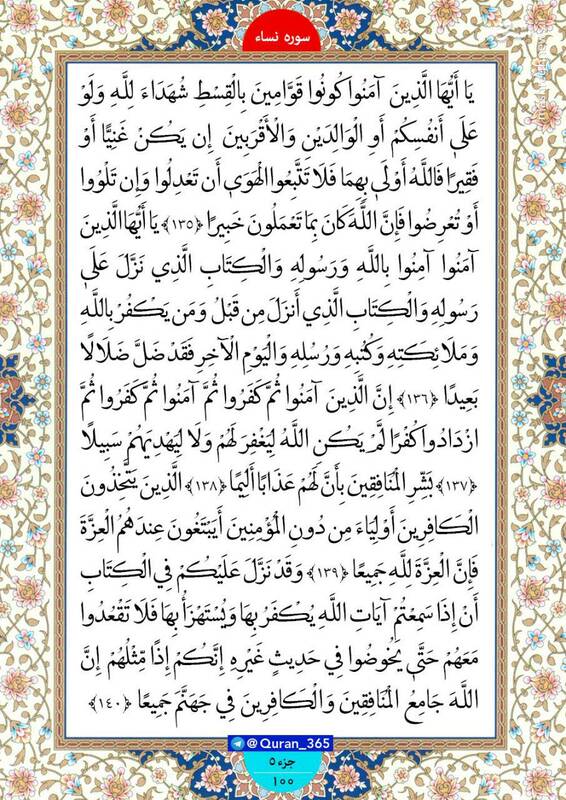 سوره نساء
يَا أَيُّهَا الَّذِينَ آمَنُوا كُونُوا قَوَّامِينَ بِالْقِسْطِ شُهَدَاءَ لِلَّهِ وَلَوْ
عَلَىٰ أَنْفُسِكُمْ أَوِ الْوَالِدَيْنِ وَالْأَقْرَبِينَ إِن يَكُنْ غَنِيًّا أَوْ
فَقِيرًا فَاللَّهُ أَوْلَىٰ بِهِمَا فَلَا تَتَّبِعُوا الْهَوَىٰ أَن تَعْدِلُوا وَإِن تَلْوُوا
أَوْ تُعْرِضُوا فَإِنَّ اللَّهَ كَانَ بِمَا تَعْمَلُونَ خَبِيرًا ﴿۱۳۵﴾ يَا أَيُّهَا الَّذِينَ
آمَنُوا آمِنُوا بِاللَّهِ وَرَسُولِهِ وَالْكِتَابِ الَّذِي نَزَّلَ عَلَىٰ
رَسُولِهِ وَالْكِتَابِ الَّذِي أَنزَلَ مِن قَبْلُ وَمَن يَكْفُرْ بِاللَّهِ
وَمَلَائِكَتِهِ وَكُتُبِهِ وَرُسُلِهِ وَالْيَوْمِ الْآخِرِ فَقَدْ ضَلَّ ضَلَالًا
بَعِيدًا ﴿۱۳۶﴾ إِنَّ الَّذِينَ آمَنُوا ثُمَّ كَفَرُوا ثُمَّ آمَنُوا ثُمَّ كَفَرُوا ثُمَّ
ازْدَادُوا كُفْرًا لَّمْ يَكُنِ اللَّهُ لِيَغْفِرَ لَهُمْ وَلَا لِيَهْدِيَهُمْ سَبِيلًا
﴿۱۳۷﴾ بَشِّرِ الْمُنَافِقِينَ بِأَنَّ لَهُمْ عَذَابًا أَلِيمًا ﴿۱۳۸﴾ الَّذِينَ يَتَّخِذُونَ
الْكَافِرِينَ أَوْلِيَاءَ مِن دُونِ الْمُؤْمِنِينَ أَيَبْتَغُونَ عِندَهُمُ الْعِزَّةَ
فَإِنَّ الْعِزَّةَ لِلَّهِ جَمِيعًا ﴿۱۳۹﴾ وَقَدْ نَزَّلَ عَلَيْكُمْ فِي الْكِتَابِ
أَنْ إِذَا سَمِعْتُمْ آيَاتِ اللَّهِ يُكْفَرُ بِهَا وَيُسْتَهْزَأُ بِهَا فَلَا تَقْعُدُوا
مَعَهُمْ حَتَّىٰ يَخُوضُوا فِي حَدِيثٍ غَيْرِهِ إِنَّكُمْ إِذًا مِّثْلُهُمْ إِنَّ
اللَّهَ جَامِعُ الْمُنَافِقِينَ وَالْكَافِرِينَ فِي جَهَنَّمَ جَمِيعًا ﴿۱۴۰﴾
@Quran_365
جزء ۵
۱۰۰